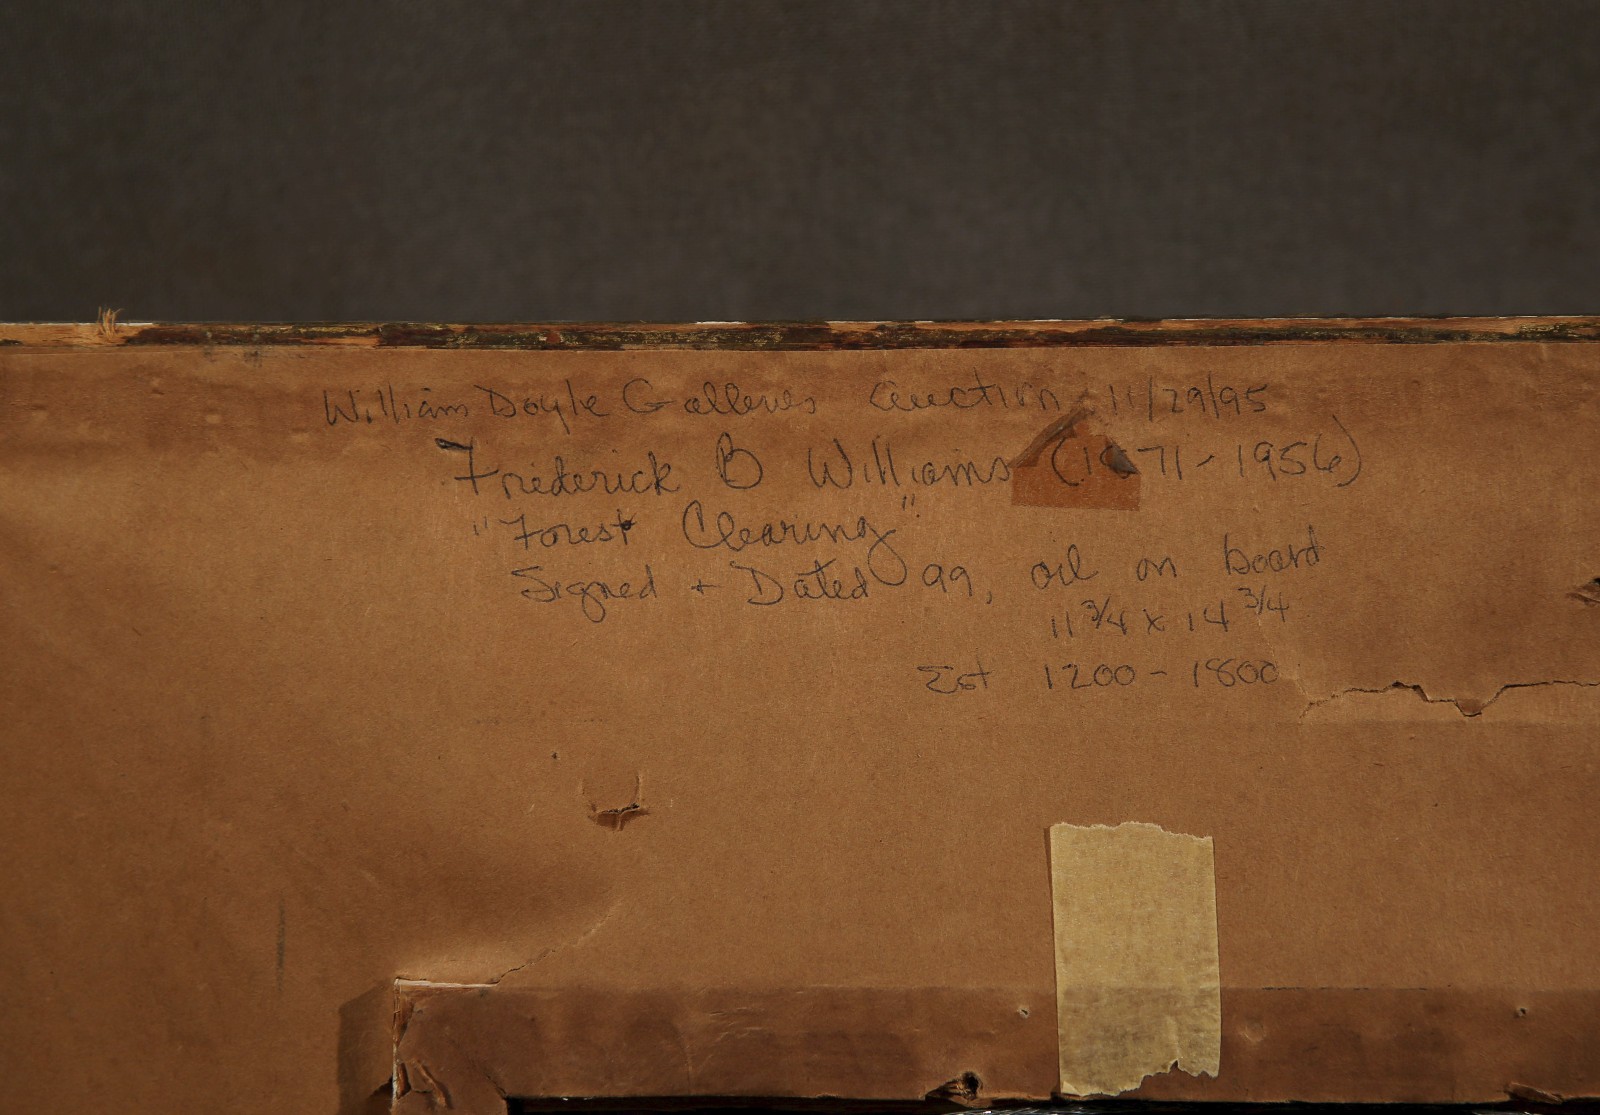 William Doyle Galleries auction 11/29/95
Frederick B Williams (1871-1956)
"Forest Clearing"
Signed + Dated 99, oil on board
11 3/4 x 14 3/4
Est 1200 - 1800